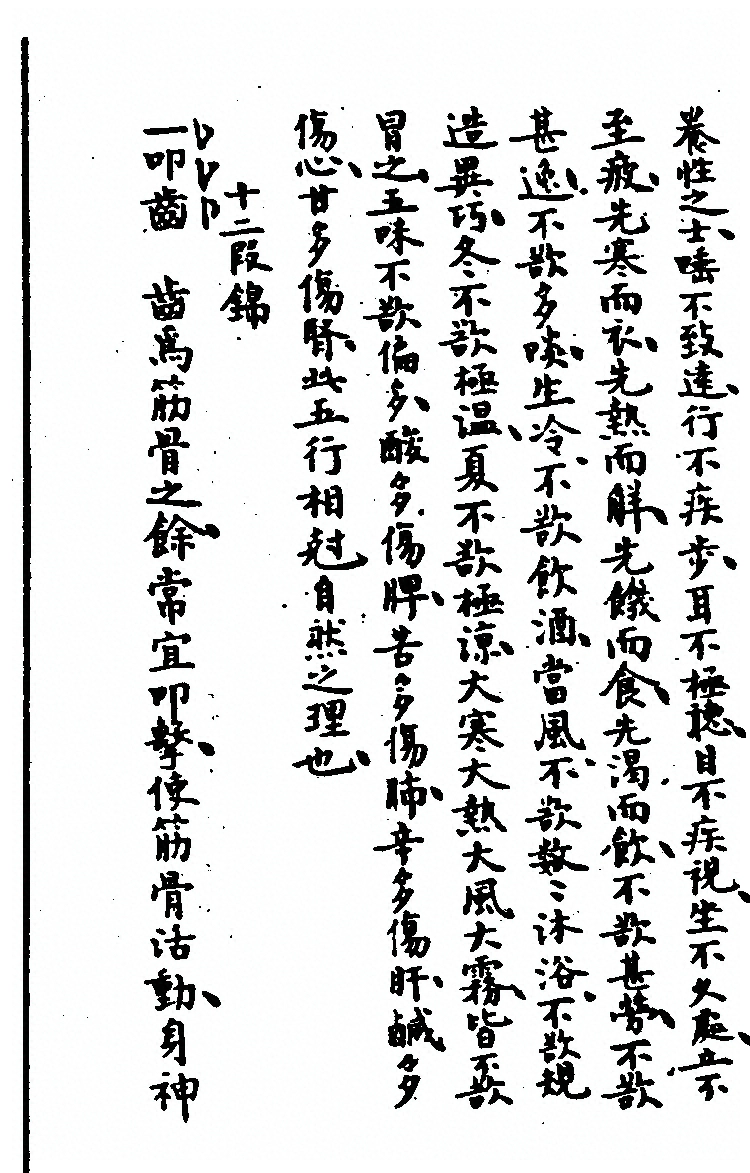 養性之士、唾不致遠、行不疾步、耳不極聽、目不疾視、坐不久處、立不
至疲、先寒而衣、先熱而解、先饑而食、先渴而飲、不欲甚勞、不欲
甚逸、不欲多啖生冷、不欲飲酒、當風、不欲數〻沐浴、不欲規
造異巧、冬不欲極温、夏不欲極涼、大寒大熱大風大霧、皆不欲
冒之、五味不欲偏多、酸多傷脾、苦多傷肺、辛多傷肝、鹹多
傷心、甘多傷腎、此五行相尅自然之理也、
十二段錦
一叩齒　齒為筋骨之餘、常宜叩擊、使筋骨活動、身神